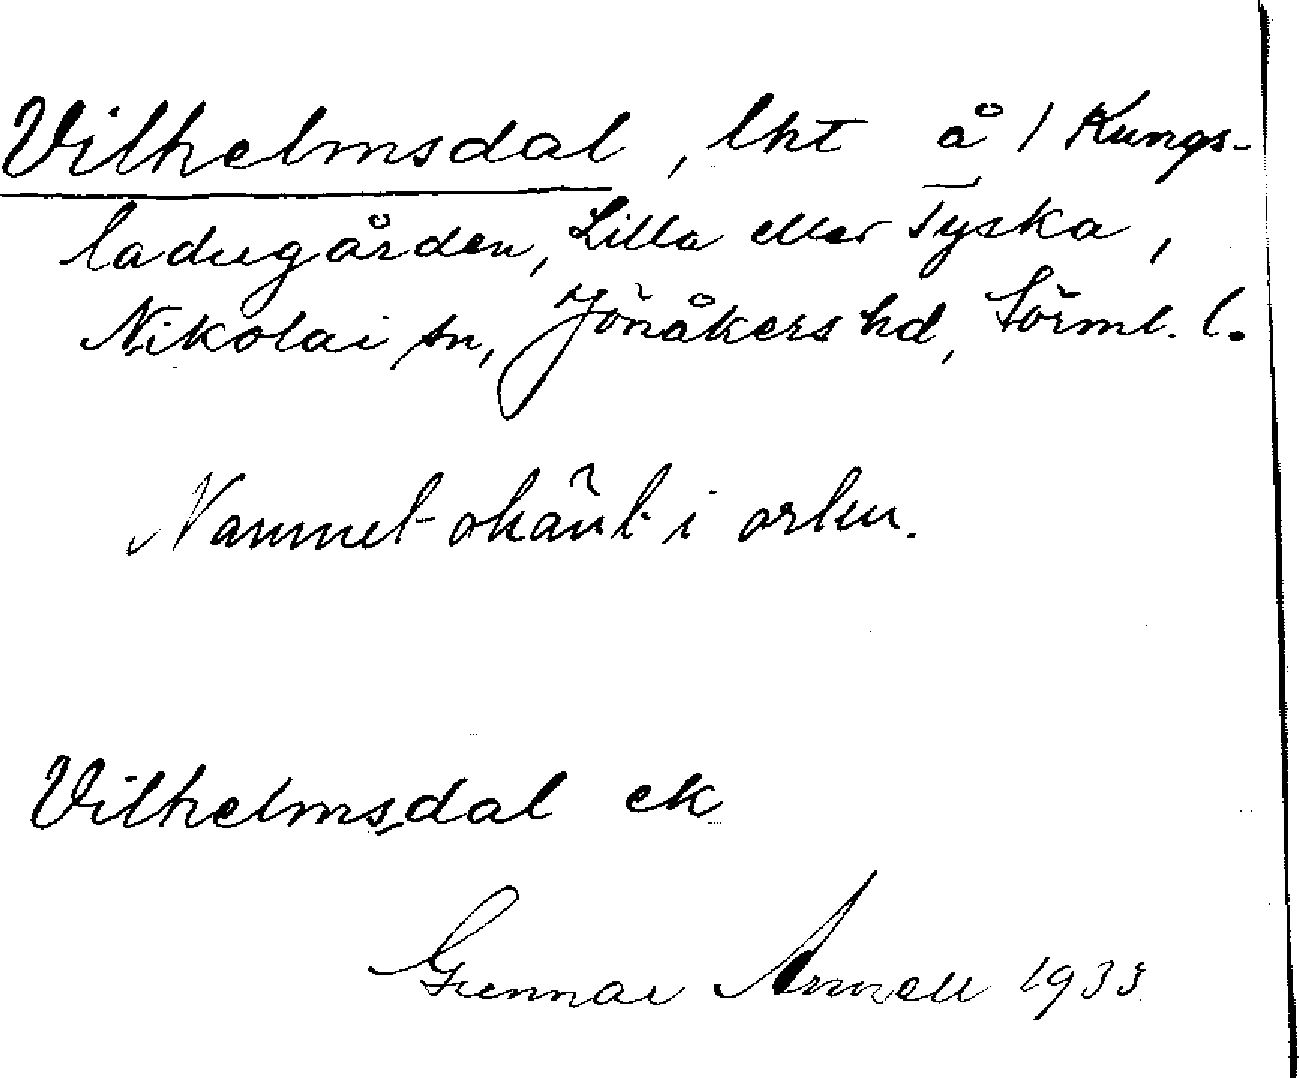 Vilhelmsdal, lht å 1 Kungs-
ladugården, Lilla eller Tyska,
Nikolai sn, Jönåkers hd, Sörml. l.
Namnet okänt i orten.
Vilhelmsdal ek
Gunnar 1933